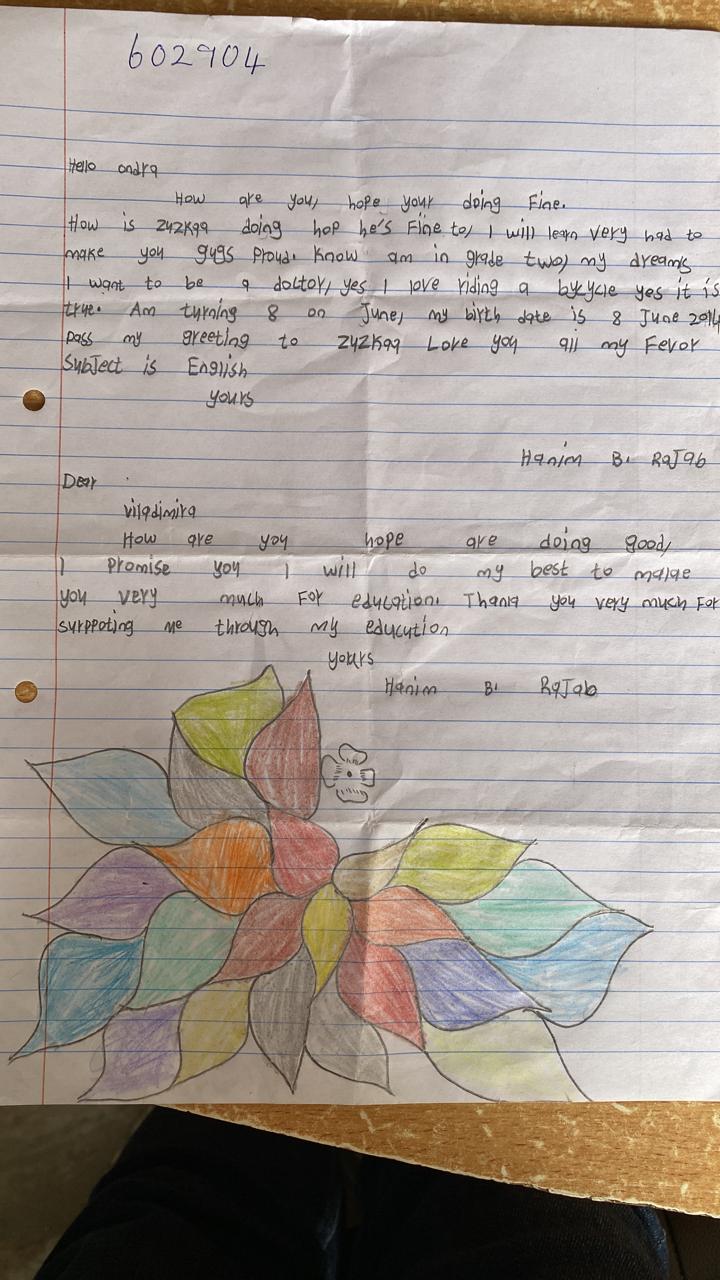 602904
Hello ondra
How are you, hope your doing Fine.
How is zuzkaa doing hop he's Fine to, I will learn very had to
make you guys proud. Know am in grade two, my dreams
I want to be a doctor, yes I love riding a bycycle yes it is
true. Am turning 8 on June, my birth date is 8 June 2014
pass my greeting to zuzkaa Love you all my Fevor
Subject is English
yours
Hanim B. RaJab
Dear
viladimira
How are you hope are doing good,
I Promise you I will do my best to make
you very much For education. Thank you very much For
surppoting me through my education
yours
Hanim B. RaJab